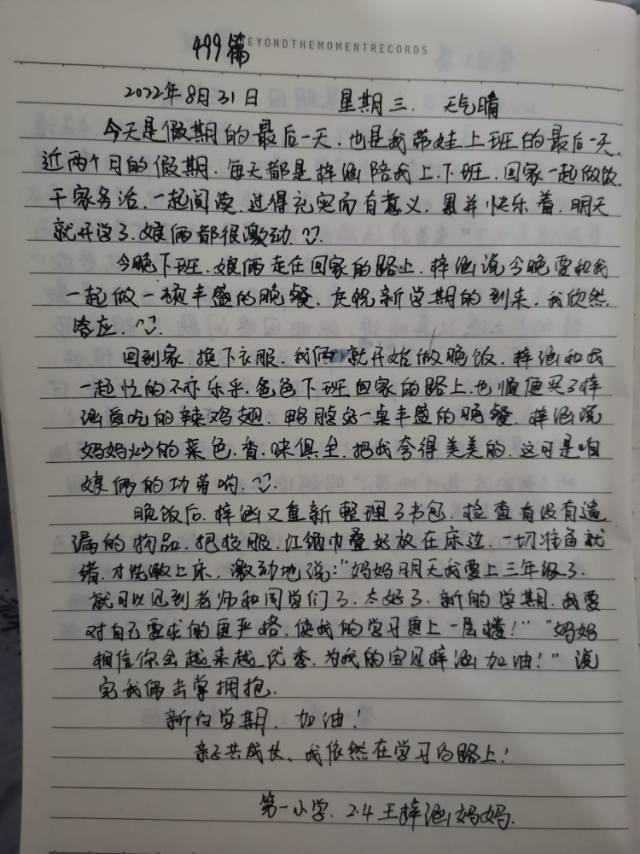 499篇
EYONDTHEMOMENTRECORDS
2022年8月31日 星期三. 天气晴
今天是假期的最后一天,也是我带娃上班的最后一天.
近两个月的假期.每天都是梓涵陪我上.下班.回家一起做饭.
干家务活.一起阅读.过得充实而有意义.累并快乐着.明天
就开学了.娘俩都很激动.
今晚下班.娘俩走在回家的路上.梓涵说今晚要和我
一起做一顿丰盛的晚餐.庆祝新学期的到来.我欣然
答应.
回到家.换下衣服.我俩就开始做晚饭.梓涵和我
一起忙的不亦乐乎.爸爸下班回家的路上.也顺便买了梓
涵爱吃的辣鸡翅.鸭脖好一桌丰盛的晚餐.梓涵说
妈妈炒的菜色.香.味俱全.把我夸得美美的.这可是咱
娘俩的功劳哟.
晚饭后.梓涵又重新整理了书包.检查有没有遗
漏的物品.把校服.红领巾叠好放在床边.一切准备就
绪.才洗漱上床.激动地说:"妈妈明天我要上三年级了.
就可以见到老师和同学们了.太好了.新的学期.我要
对自己要求的更严格.使我的学习更上一层楼!" "妈妈
相信你会越来越优秀.为我的宝贝梓涵加油!" 说
完我俩击掌拥抱.
新的学期.加油!
亲子共成长.我依然在学习的路上!
第一小学.2.4王梓涵妈妈.